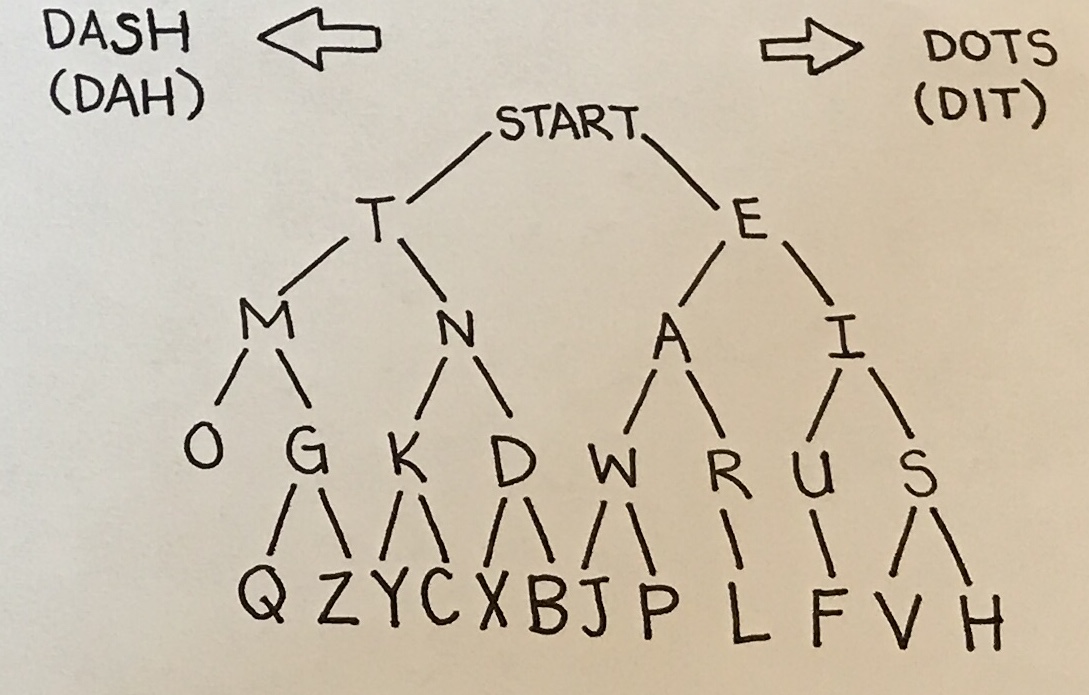 DASH
(DAH)
DOTS
(DIT)
START
T E
M N A I
O G K D W R U S
Q Z Y C X B J P L F V H